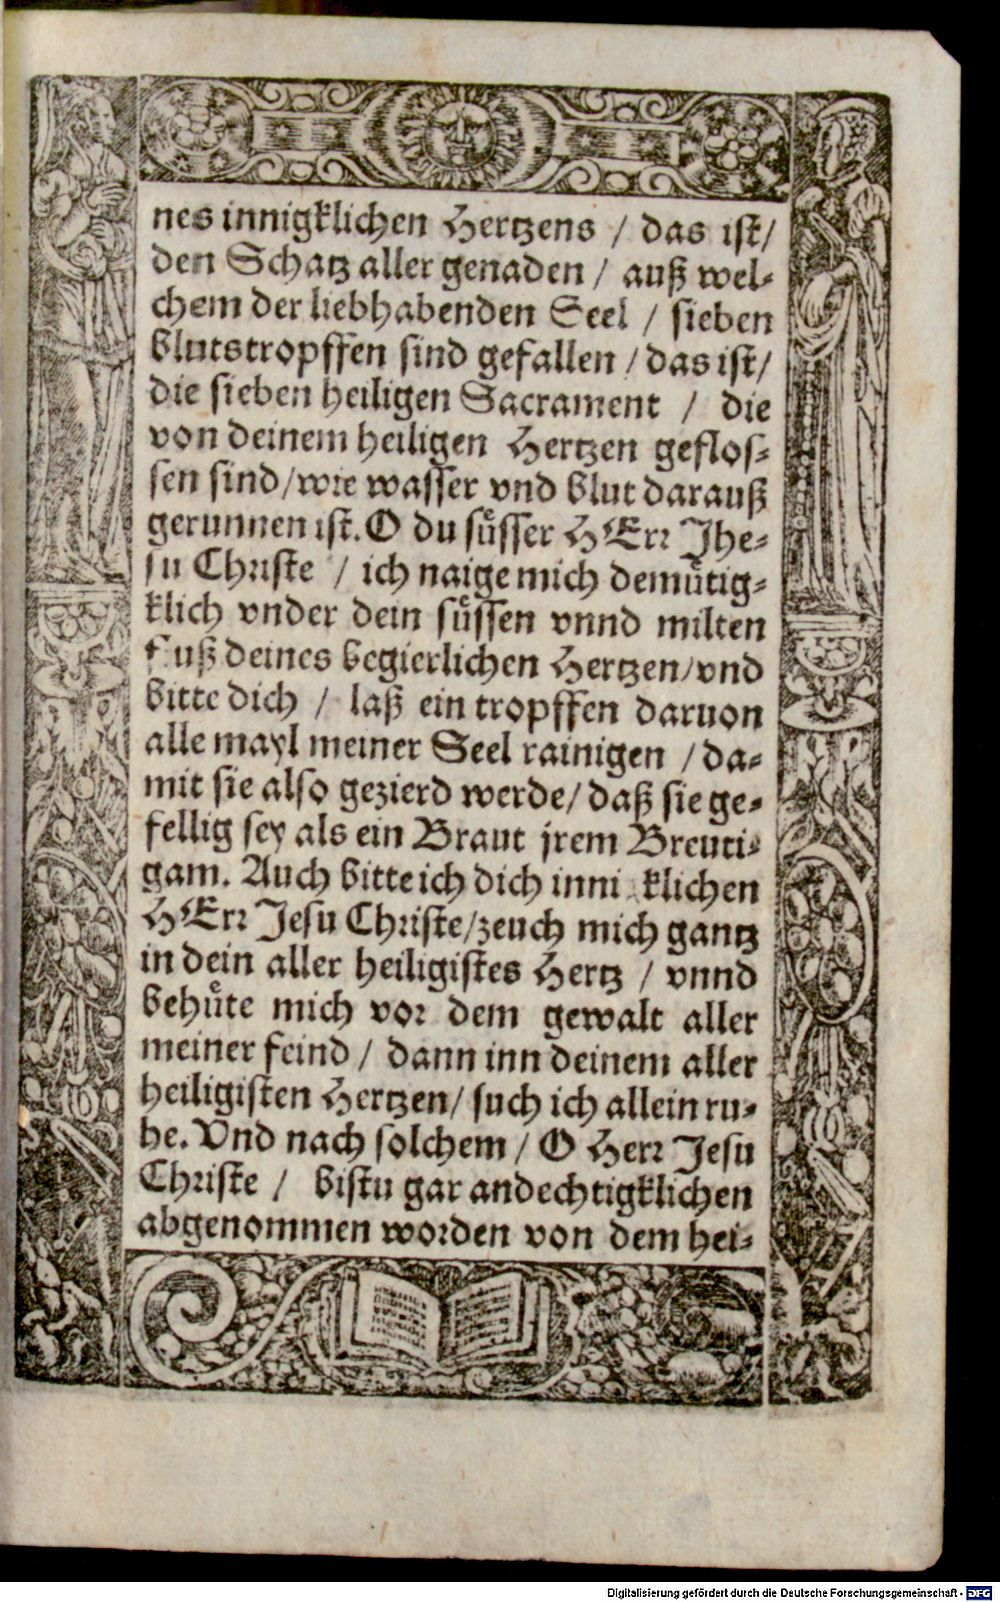 nes innigklichen Hertzens / das ist/
den Schatz aller genaden / auß wel-
chem der liebhabenden Seel / sieben
blutstropffen sind gefallen / das ist/
die sieben heiligen Sacrament / die
von deinem heiligen Hertzen geflos-
sen sind/wie wasser vnd blut darauß
gerunnen ist. O du suͤsser HErr Jhe-
su Christe / ich naige mich demuͤtig-
klich vnder dein suͤssen vnnd milten
deines begierlichen Hertzen/vnd
bitte dich / laß ein tropffen daruon
alle mayl meiner Seel rainigen / da-
mit sie also gezierd werde/ daß sie ge-
fellig sey als ein Braut jrem Breuti-
gam. Auch bitte ich dich inni klichen
HErr Jesu Christe/zeuch mich gantz
in dein aller heiligistes Hertz / vnnd
behuͤte mich vor dem gewalt aller
meiner feind / dann inn deinem aller
heiligisten Hertzen/ such ich allein ru-
he. Vnd nach solchem / O Herr Jesu
Christe / bistu gar andechtigklichen
abgenommen worden von dem hei-
Digitalisierung gefördert durch die Deutsche Forschungsgemeinschaft - DFG